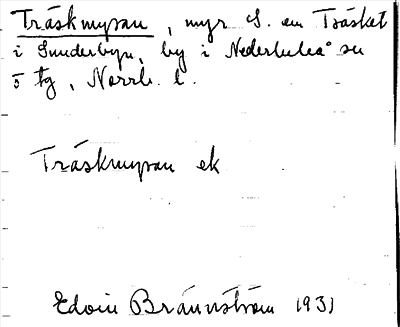 Träskmyran, myr S. om Träsket
i Sunderbyn, by i Nederluleå sn
ö tg, Norrb. l.
Träskmyran ek
Edvin Brännström 1931